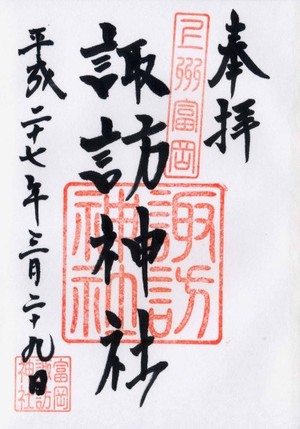 奉拝
上州富岡
諏訪神社
諏訪神社
平成二十七年三月二十九日
富岡諏訪神社